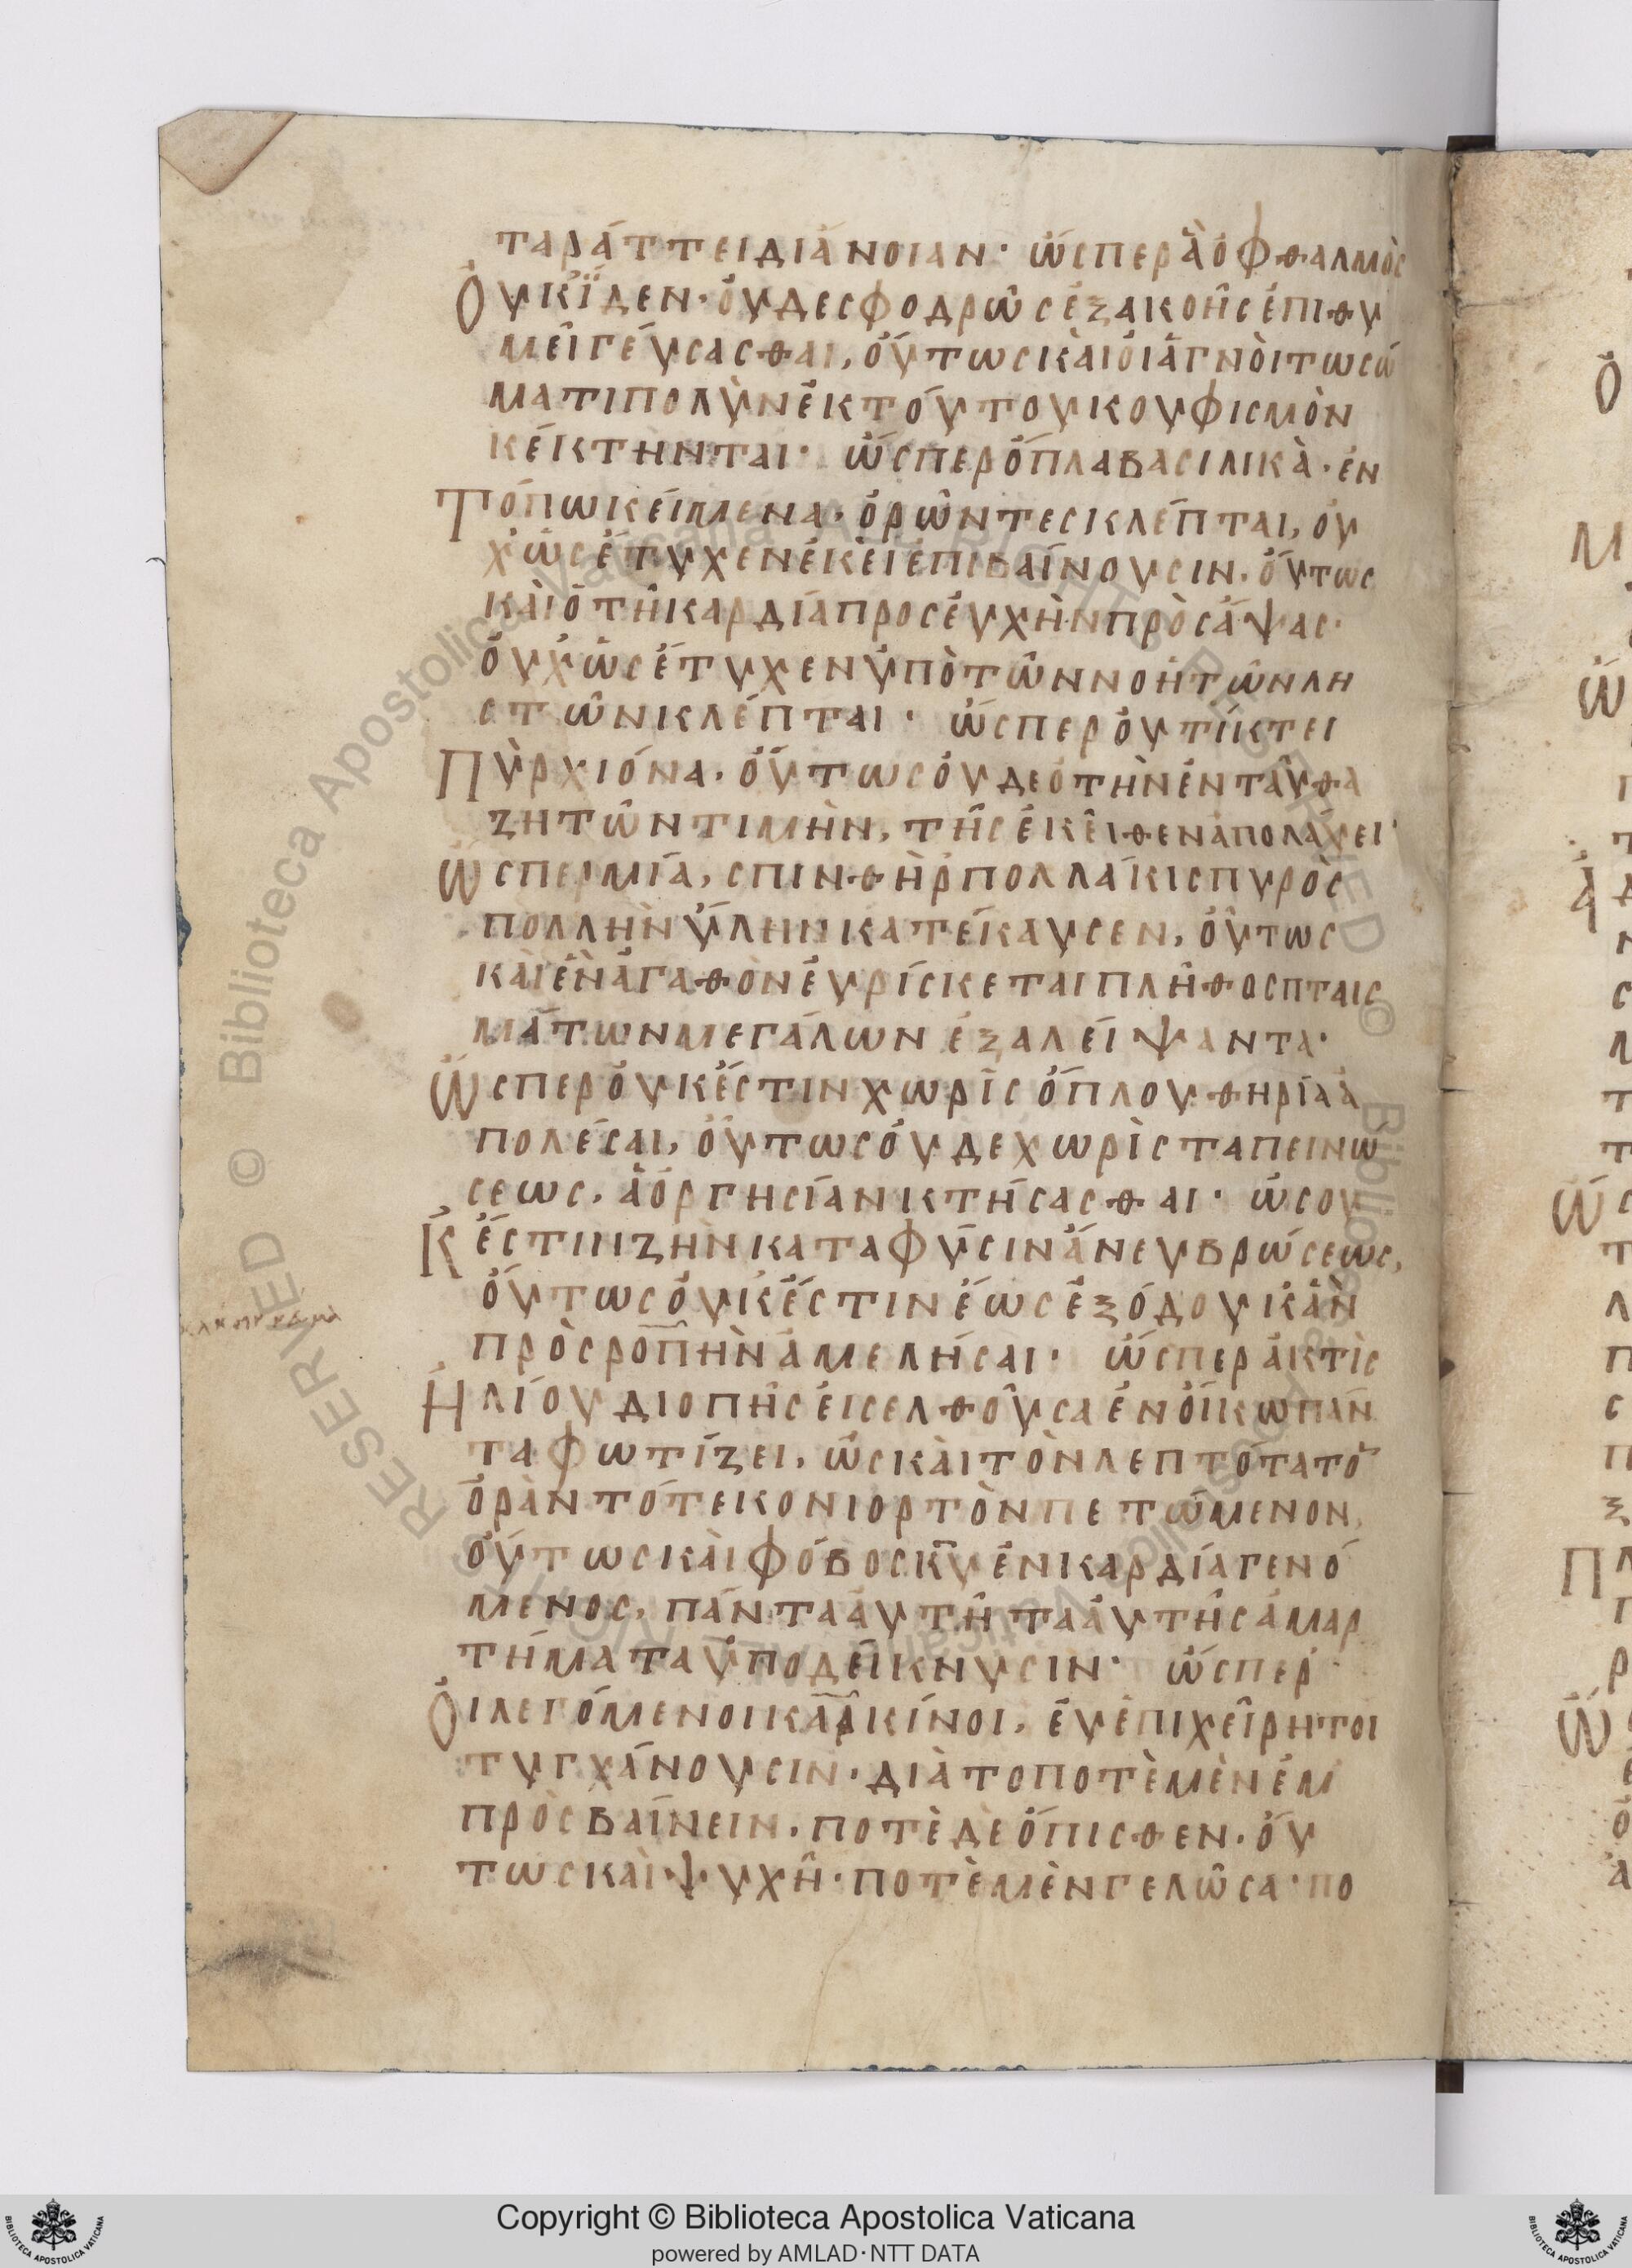 ταράττει διάνοιαν· ὥσπερ ἃ ὀφθαλμὸς
Οὐκ ἴδεν· οὐδὲ σφοδρῶς ἐξ ἀκοῆς ἐπιθυ
μεῖ γεύσασθαι, οὕτως καὶ οἱ ἁγνοὶ τω σώ
ματι πολὺν ἐκ τούτου κουφισμὸν
κέκτηνται· ὥσπερ ὅπλα βασιλικὰ· ἐν
Τόπω κείμενα· ὁρῶντες κλέπται, οὐ
χ ὡς ἔτυχεν ἐκεῖ ἐπιβαίνουσιν· οὕτως
καὶ ὁ τῆ καρδία προσευχὴν πρὸσάψας·
οὐχ ὡς ἔτυχεν ὑπὸ τῶν νοητῶν λη
στῶν κλέπται· ὥσπερ οὐ τίκτει
Πῦρ χιόνα· οὕτως οὐδε ὁ τὴν ἐνταῦθα
ζητῶν τιμὴν, τῆς ἐκεῖθεν ἀπολάυει·
Ὥσπερ μία, σπινθὴρ πολλάκις πυρὸς
πολλὴν ὕλην κατέκαυσεν, οὕτως
καὶ ἓν ἀγαθὸν ἑυρίσκεται πλῆθος πταις
μάτων μεγάλων ἐξαλείψαντα·
Ὥσπερ οὐκ ἔστιν χωρὶς ὅπλου θηρία ἀ
πολέσαι, οὕτως οὐδε χωρὶς ταπεινώ
σεως, ἀοργησίαν κτήσασθαι· ὡς οὐ
Κ ἔστιν ζῆν κατα φύσιν ἄνευ βρώσεως,
οὕτως οὐκ ἔστιν ἕως ἐξόδου κἂν
πρὸς ροπὴν ἀμελῆσαι· ὥσπερ ἀκτὶς
Ηλίου δι οπῆς εἰσελθοῦσα ἐν οἴκω πάν
τα φωτίζει, ὡς καὶ τὸν λεπτότατο
ὁρᾶν τότε κονιορτὸν πετώμενον,
οὕτως καὶ φόβος κ̅υ̅ ἐν καρδία γενό
μενος, πάντα αυτῆ τα αυτῆς ἁμαρ
τήματα ὑποδείκνυσιν· ὥσπερ
Οἱ λεγόμενοι καρκίνοι, ἐυεπιχείρητοι
τυγχάνουσιν· διὰ το ποτὲ μὲν ἐμ
πρὸς βαίνειν, ποτὲ δὲ ὄπισθεν· οὕ
τως καὶ ψυχὴ· ποτὲ μὲν γελῶσα· πο
Copyright © Biblioteca Apostolica Vaticana
powered by AMLAD·NTT DATA